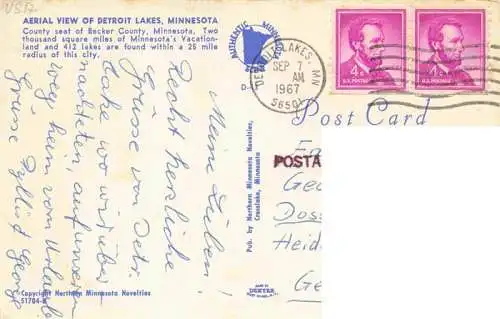 US17
AERIAL VIEW OF DETROIT LAKES, MINNESOTA
County seat of Becker County, Minnesota. Two
thousand square miles of Minnesota's Vacation-
land and 412 lakes are found within a 25 mile
radius of this city.
AUTHENTIC MINNESOTA
D-
DETROIT LAKES, MN
SEP 7
AM
1967
56501
4¢
U.S. POSTAGE
4¢
U.S. POSTAGE
Post Card
POSTA
Ge
Doss
Heid
Ge
Meine Lieben!
Recht herzliche
Grüsse von Detr.
Lake wo wir über-
nachteten, auf unserem
weg heim vom Urlaub
Grüsse Phyllis & George
Pub. by Northern Minnesota Novelties,
Crosslake, Minnesota
MADE BY
DEXTER
WEST NYACK, N.Y.
Copyright Northern Minnesota Novelties
51704-B